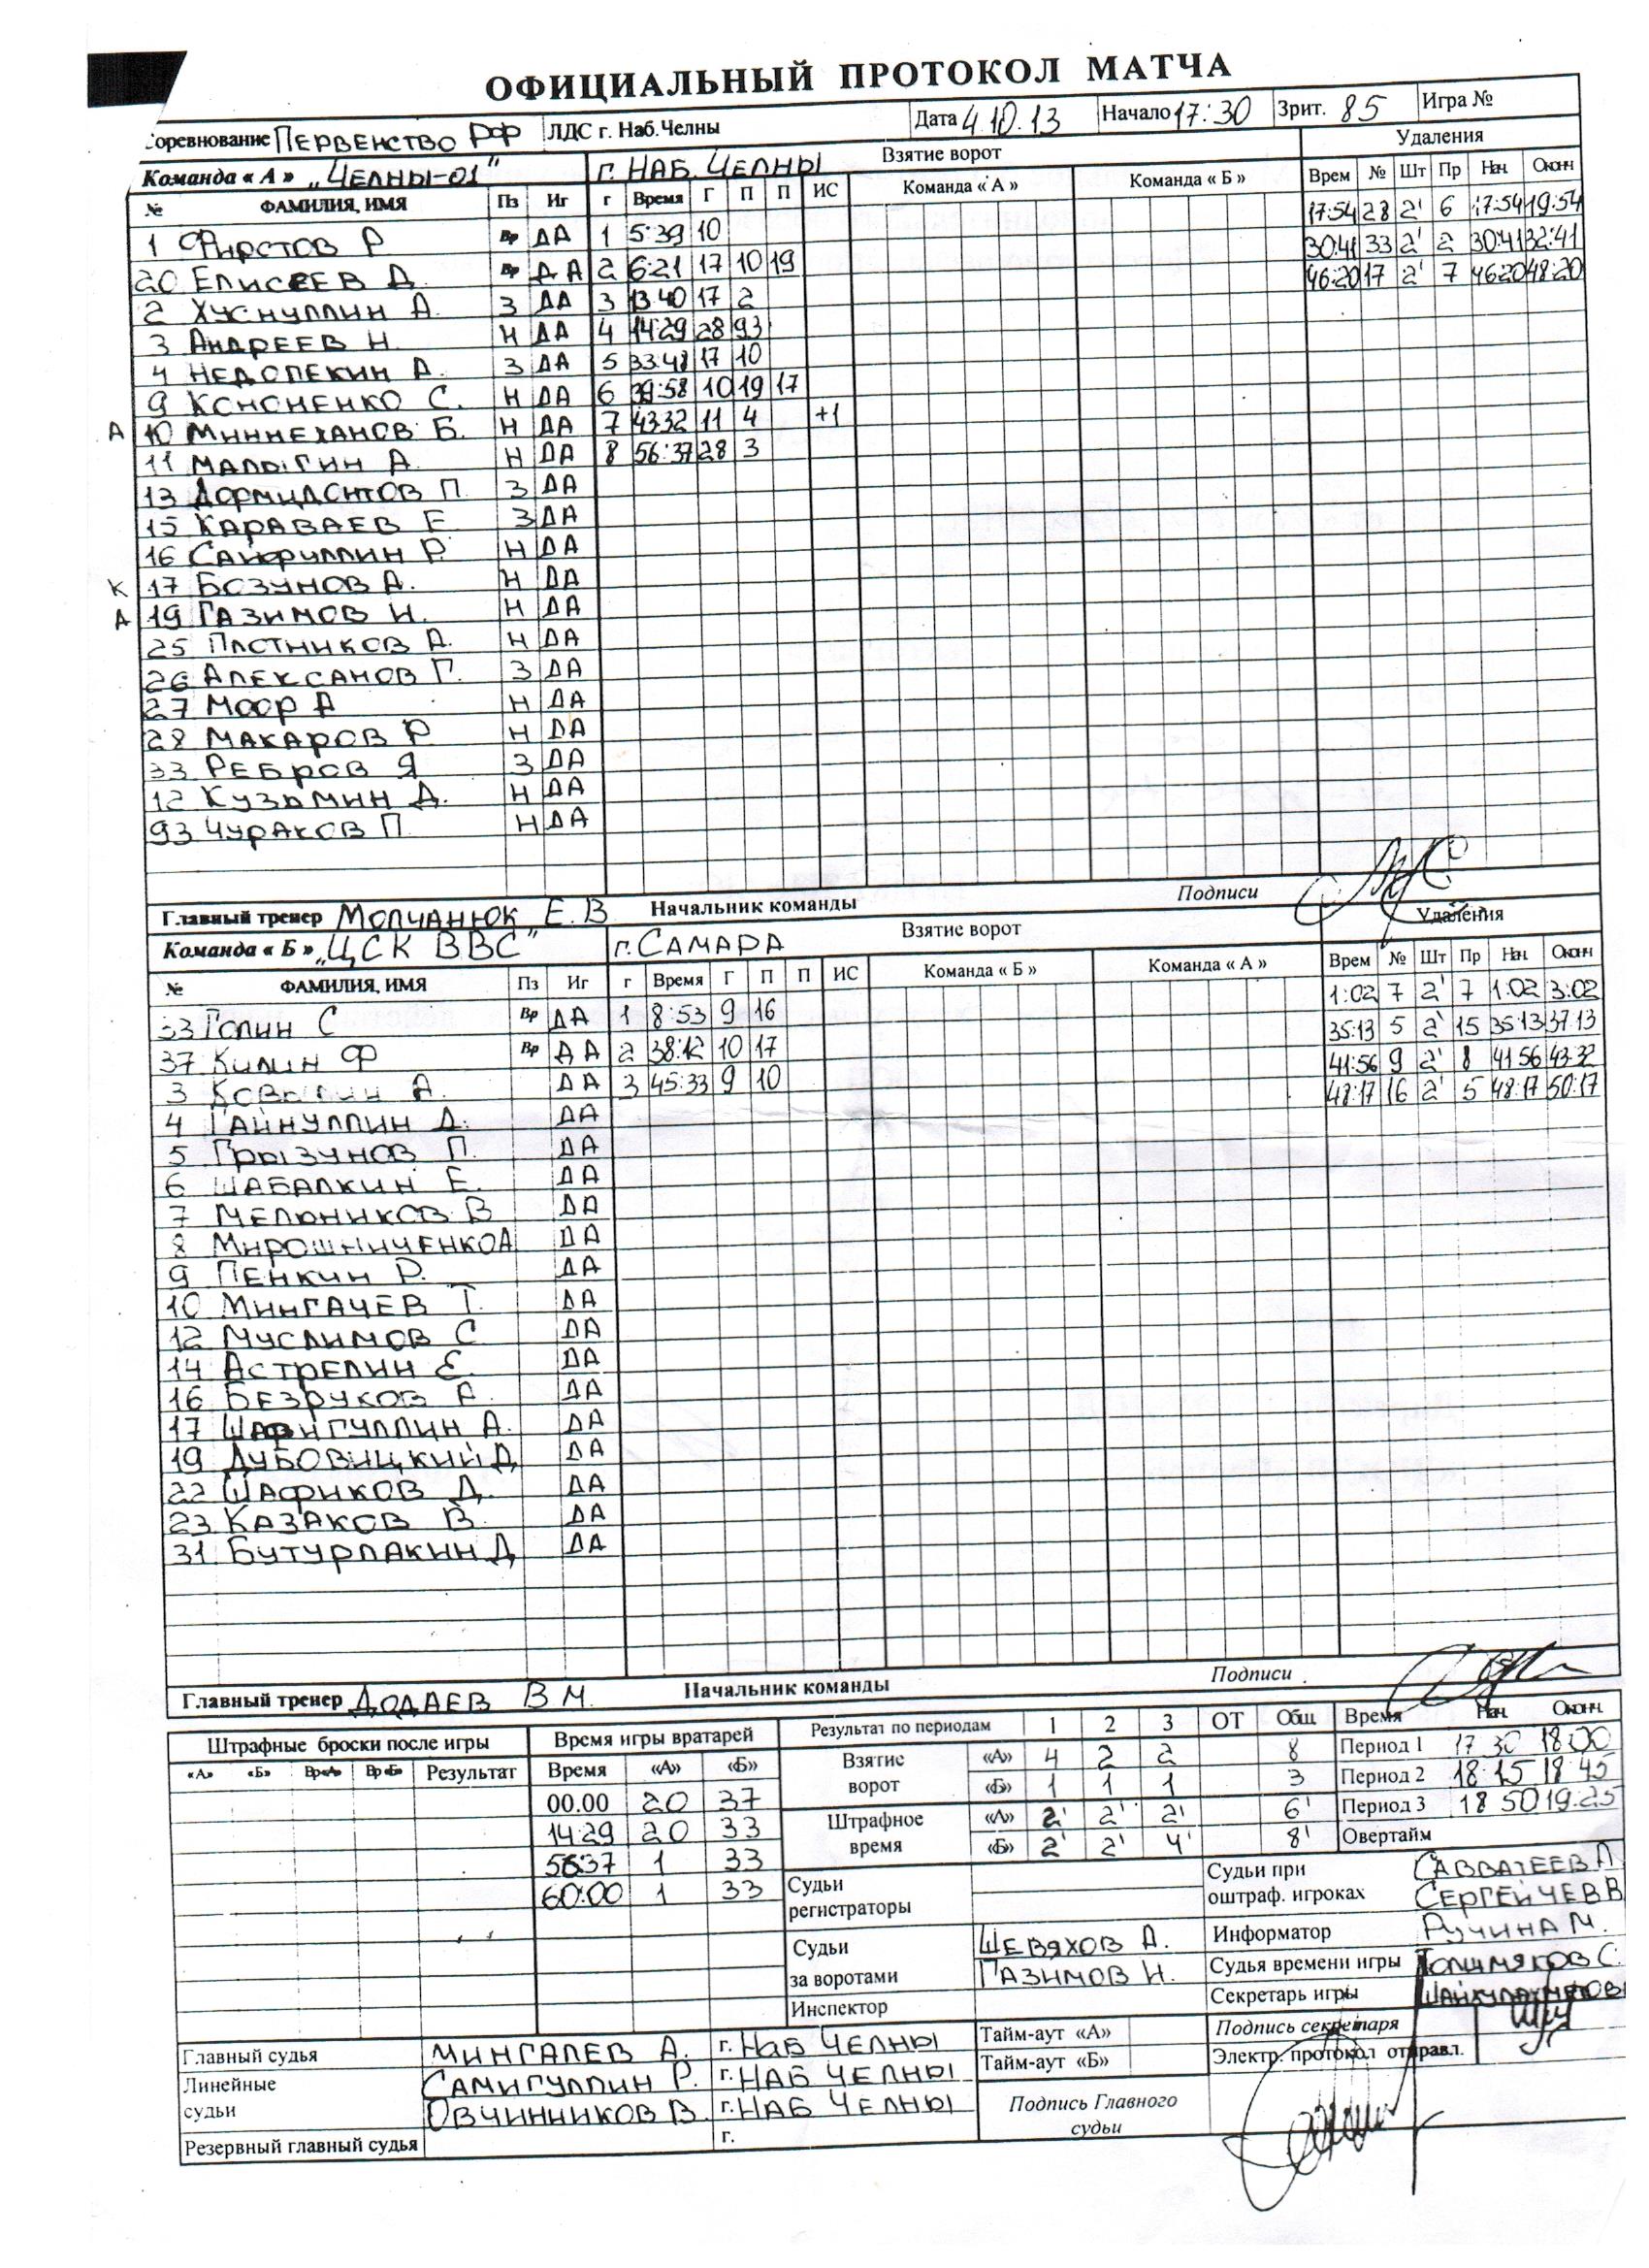 ОФИЦИАЛЬНЫЙ ПРОТОКОЛ МАТЧА
Соревнование ПЕРВЕНСТВО РФ ЛДС г. Наб.Челны Дата 4.10.13 Начало 17:30 Зрит. 85 Игра №
Команда « А » „ЧЕЛНЫ-01" г. НАБ. ЧЕЛНЫ Взятие ворот Удаления
№ ФАМИЛИЯ, ИМЯ Пз Иг г Время Г П П ИС Команда « А » Команда « Б » Врем № Шт Пр Нач. Оконч
1 Фирстов Р Вр ДА 1 5:39 10 17:54 28 2' 6 17:54 19:54
20 ЕЛИСЕЕВ Д. Вр ДА 2 6:21 17 10 19 30:41 33 2' 2 30:41 32:41
2 ХУСНУЛЛИН А. З ДА 3 13:40 17 2 46:20 17 2' 7 46:20 48:20
3 АНДРЕЕВ Н. Н ДА 4 14:29 28 93
4 НЕДОПЕКИН А. З ДА 5 33:48 17 10
9 КОНОНЕНКО С. Н ДА 6 39:58 10 19 17
А 10 МИННЕХАНОВ Б. Н ДА 7 43:32 11 4 +1
11 МАЛЫГИН А. Н ДА 8 56:37 28 3
13 ДОРМИДОНТОВ П. З ДА
15 КАРАВАЕВ Е. З ДА
16 САЙФУЛЛИН Р. Н ДА
К 17 БОЗУНОВ А. Н ДА
А 19 ГАЗИМОВ И. Н ДА
25 ПЛОТНИКОВ А. Н ДА
26 АЛЕКСАНОВ Г. З ДА
27 МООР А Н ДА
28 МАКАРОВ Р. Н ДА
33 РЕБРОВ Я З ДА
12 КУЗЬМИН Д. Н ДА
93 ЧУРАКОВ П. Н ДА
Главный тренер МОЛЧАНЮК Е.В Начальник команды Подписи
Команда « Б » „ЦСК ВВС" г. САМАРА Взятие ворот Удаления
№ ФАМИЛИЯ, ИМЯ Пз Иг г Время Г П П ИС Команда « Б » Команда « А » Врем № Шт Пр Нач. Оконч
33 ГОЛИН С Вр ДА 1 8:53 9 16 1:02 7 2' 7 1:02 3:02
37 КИЛИН Ф Вр ДА 2 38:12 10 17 35:13 5 2' 15 35:13 37:13
3 А. ДА 3 45:33 9 10 41:56 9 2' 8 41:56 43:32
4 ГАЙНУЛЛИН Д. ДА 48:17 16 2' 5 48:17 50:17
5 ГРЫЗУНОВ П. ДА
6 ШАБАЛКИН Е. ДА
7 МЕЛЬНИКОВ В ДА
8 МИРОШНИЧЕНКО А ДА
9 ПЕНКИН Р. ДА
10 МИНГАЧЕВ Т. ДА
12 МУСЛИМОВ С ДА
14 АСТРЕЛИН Е. ДА
16 БЕЗРУКОВ А. ДА
17 ШАФИГУЛЛИН А. ДА
19 ДУБОВИЦКИЙ Д ДА
22 ШАФИКОВ Д. ДА
23 КАЗАКОВ В. ДА
31 БУТУРЛАКИН Д ДА
Главный тренер ДОДАЕВ В М. Начальник команды Подписи
Штрафные броски после игры Время игры вратарей Результат по периодам 1 2 3 ОТ Общ. Время Нач. Оконч.
«А» «Б» Вр«А» Вр«Б» Результат Время «А» «Б» Взятие ворот «А» 4 2 2 8 Период 1 17 30 18:00
00.00 20 37 «Б» 1 1 1 3 Период 2 18:15 18 45
14:29 20 33 Штрафное время «А» 2' 2' 2' 6' Период 3 18 50 19:25
56:37 1 33 «Б» 2' 2' 4' 8' Овертайм
60:00 1 33 Судьи регистраторы Судьи при оштраф. игроках САВВАТЕЕВ А СЕРГЕЙЧЕВ В
Судьи за воротами ШЕВЯХОВ А. ГАЗИМОВ И. Информатор РУЧИНА М.
Судья времени игры С.
Инспектор Секретарь игры
Главный судья МИНГАЛЕВ А. г. НАБ ЧЕЛНЫ Тайм-аут «А» Подпись секретаря
Линейные судьи САМИГУЛЛИН Р. г. НАБ ЧЕЛНЫ Тайм-аут «Б» Электр. протокол отправл.
ОВЧИННИКОВ В. г. НАБ ЧЕЛНЫ Подпись Главного судьи
Резервный главный судья г.